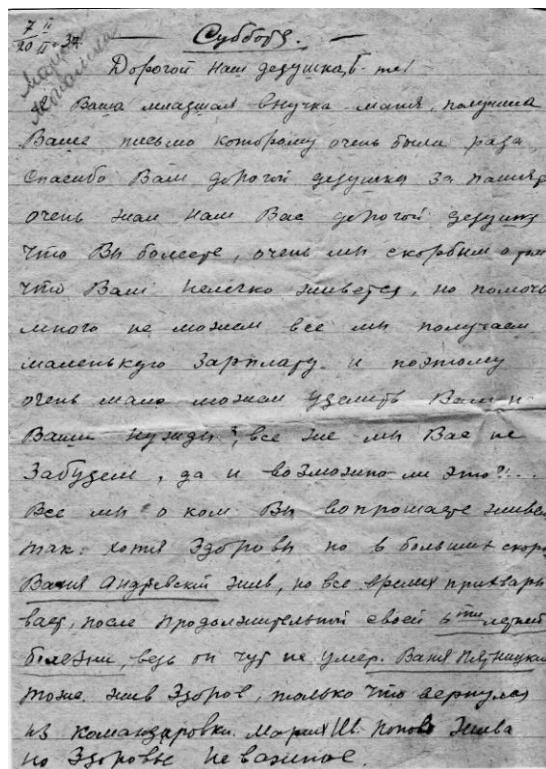 7/20 II 37.
Суббота.
Дорогой наш дедушка,
Ваша младшая внучка Маня, получила
Ваше письмо которому очень были рада
Спасибо Вам дорогой дедушка за память
очень жал нам Вас дорогой дедушка
что Вы болеете, очень мы скорбим о том
что Вам нелегко живется, но помочь
много не можем все мы получаем
маленькую зарплату и поэтому
очень мало можем уделить Вам и
Ваши нужды, все же мы Вас не
забудем, да и возможно ли это?!...
Все мы о ком Вы вопрошаете живем
так: хотя здоровы но в больших скорб
Ваня Андреевский жив, но все время прихвары
вает, после продолжительной своей летней
болезни, ведь он чут не умер. Ваня Пятницкий
тоже жив здоров, только что вернулся
из командаровки. Мария Ив. Попова жива
но здоровье неважное.